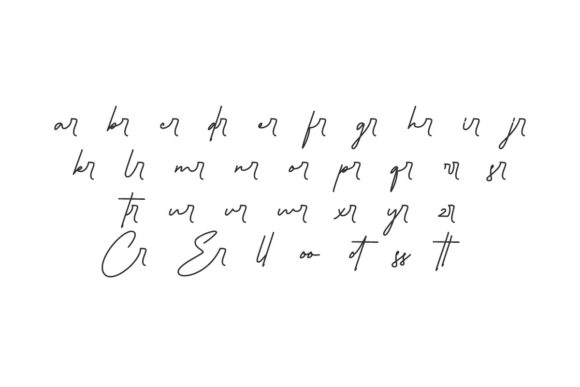 ar br cr dr er fr gr hr ir jr
kr lr mr nr or pr qr rr sr
tr ur vr wr xr yr zr
Cr Er ll oo ot ss tt